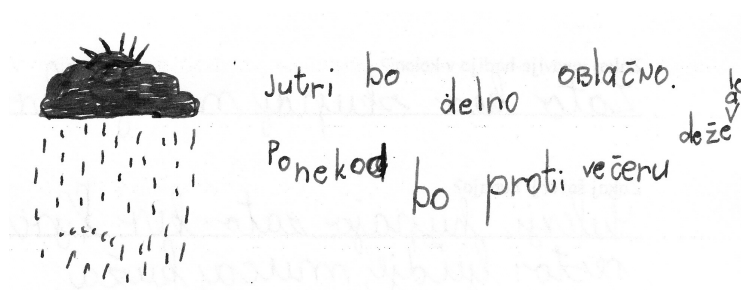 Jutri bo delno OBlAČNO.
Ponekod bo proti večeru deževalo